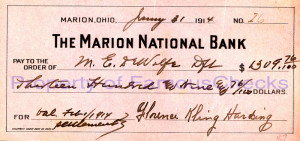 MARION, OHIO, Jany 31 1914 NO. 26
THE MARION NATIONAL BANK
PAY TO THE ORDER OF M. E. DeWolfe $1309.76/100
Property of FamousChecks
Thirteen Hundred & Nine & 76/100 DOLLARS.
FOR bal. Feb 1/1914 Florence Kling Harding
settlement